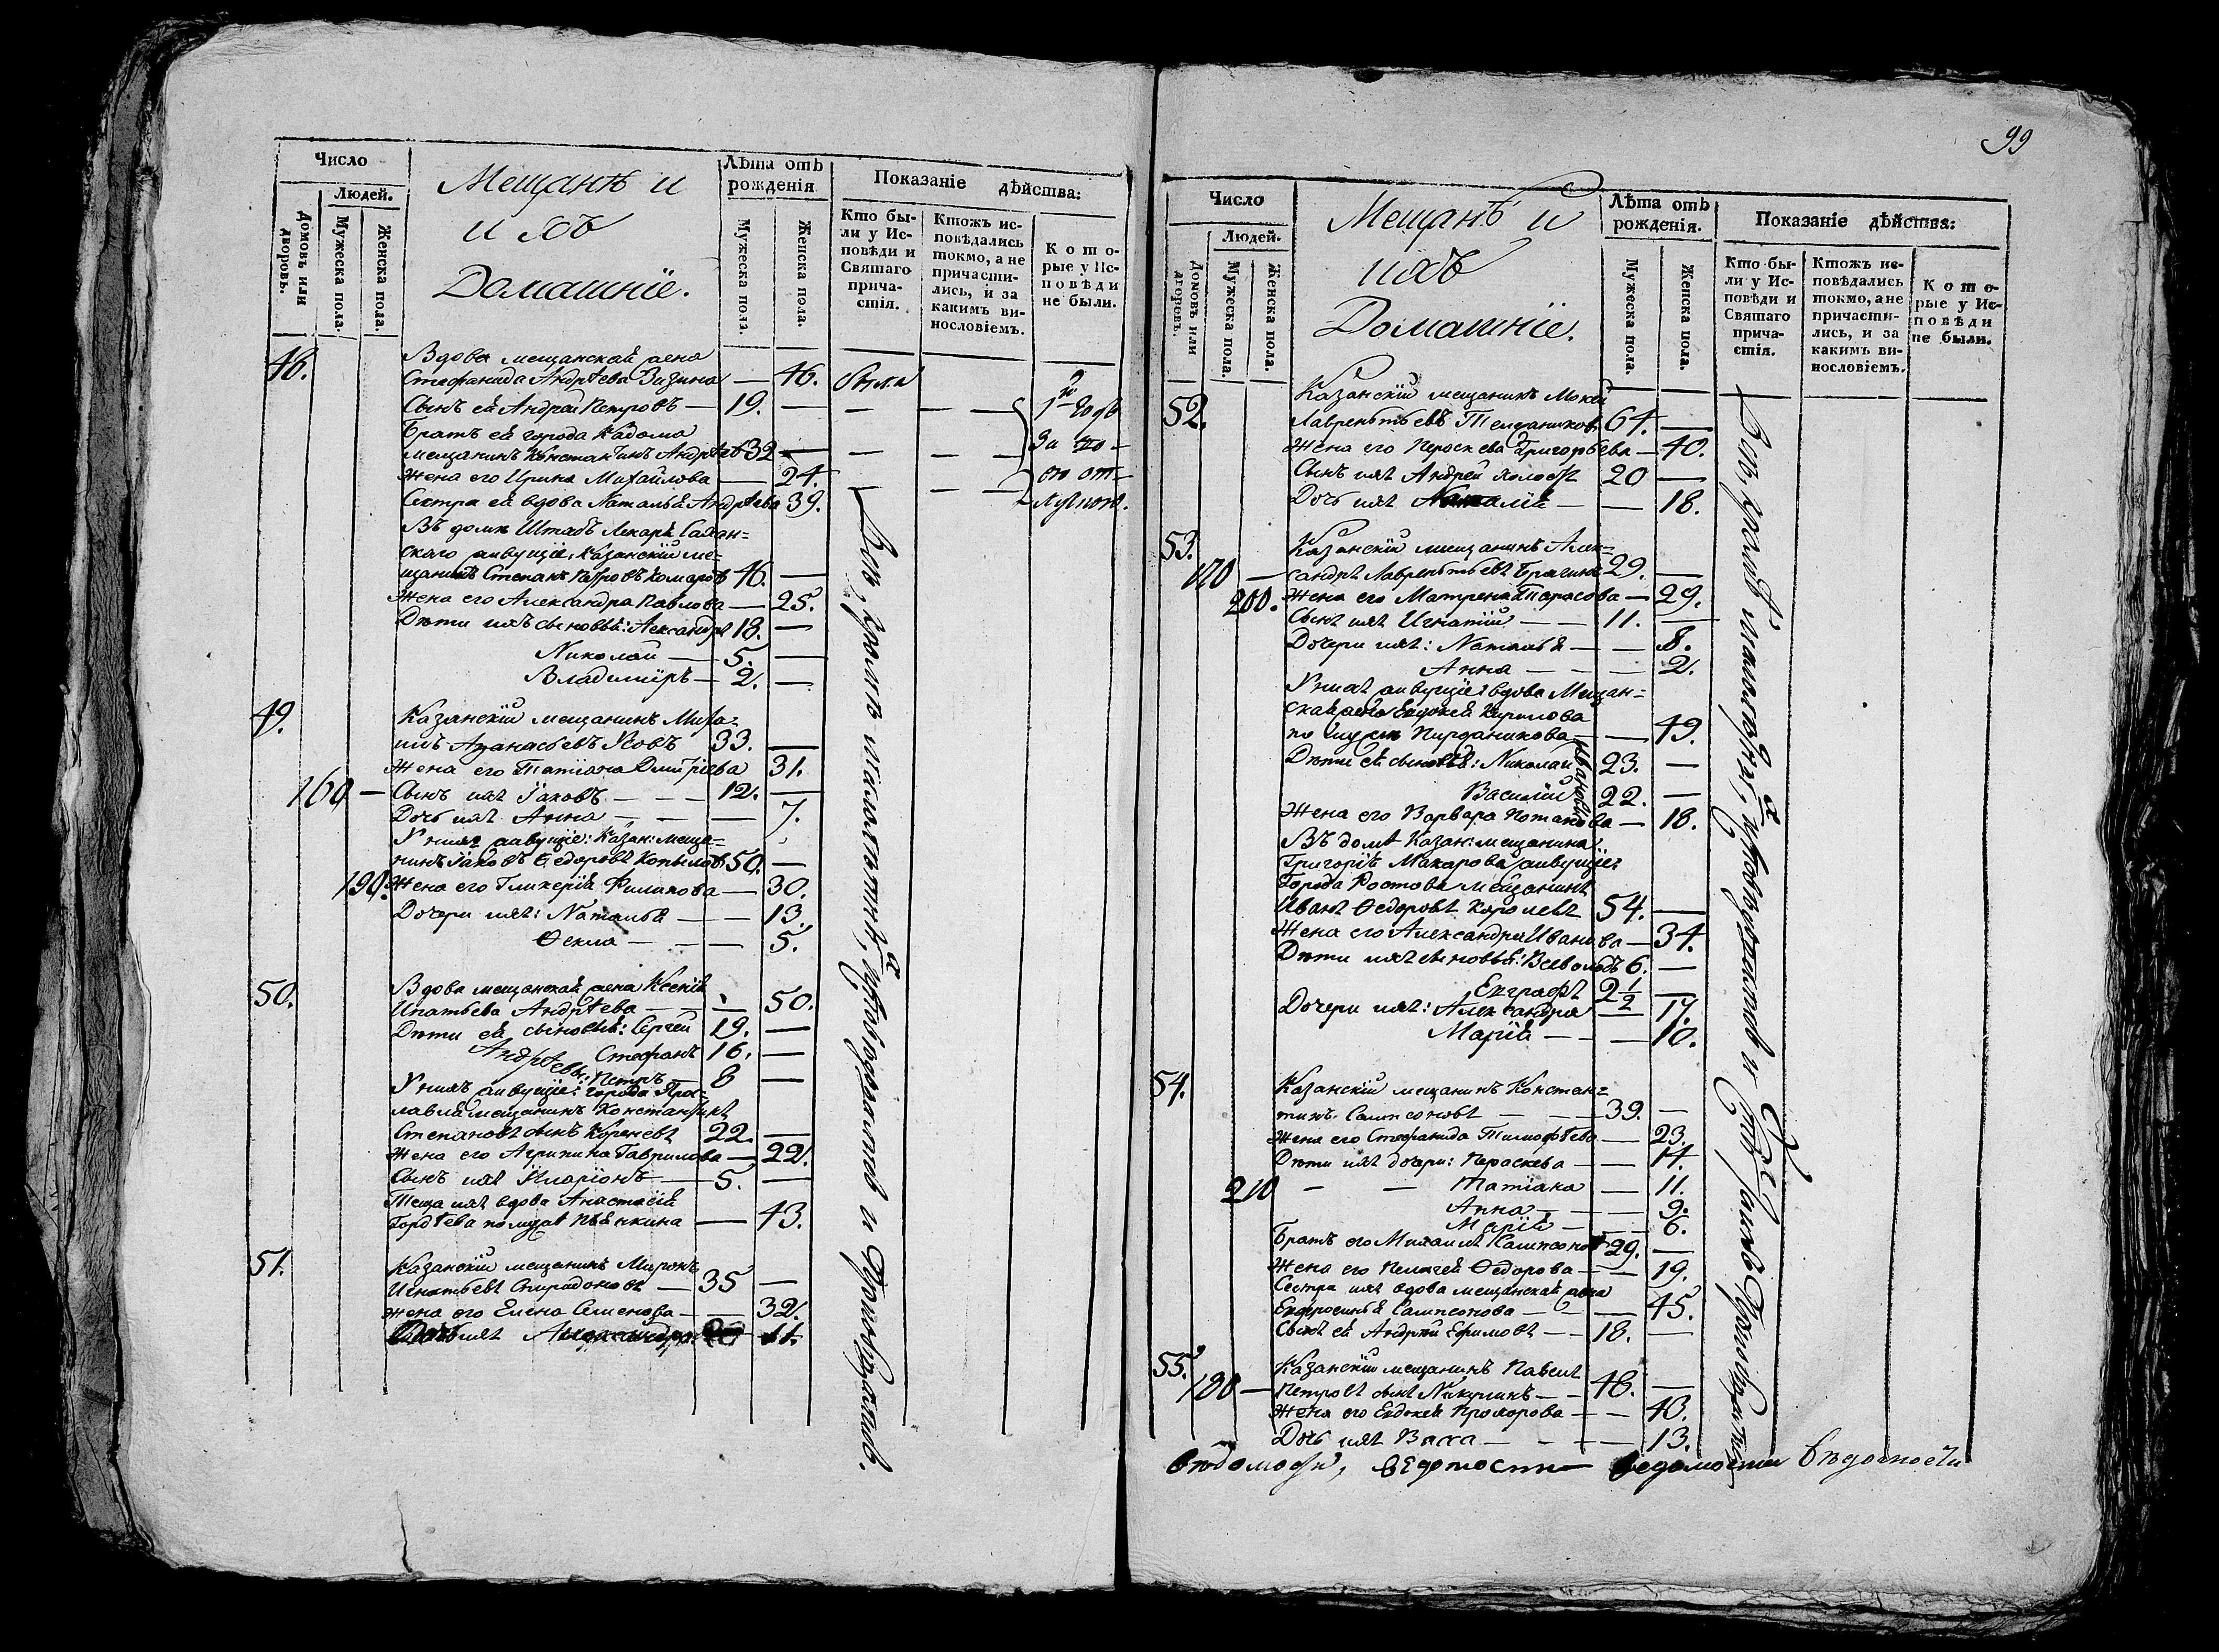 Число
Людей.
Домовъ или дворовъ.
Мужеска пола.
Женска пола.
Мещанѣ и
и ихъ
Домашніе.
Лѣта отъ рожденія
Мужеска пола.
Женска пола.
Показаніе дѣйства:
Кто бы-
ли у Ис-
повѣди и
Святаго
прича-
стія.
Ктожъ ис-
повѣдались
токмо, а не
причасти-
лись, и за
какимъ ви-
нословіемъ.
К о т о-
рые у Ис-
п о в ѣ д и
не были.
48.
Вдова мещанская жена
Стефанида Андрѣева Зизина — 46. была
Сынъ ея Андрей Петровъ — 19. —
Братъ ея города Кадома
мещанинъ Константинъ Андрѣевъ 32 —
Жена его Ирина Михайлова — 24.
Сестра ея вдова Наталья Андрѣева 39.
За по-
отл-
Въ домѣ Штабъ Лекаря
скаго живущіе: Казанскій ме-
щанинъ Степанъ Петровъ Комаровъ 46. —
Жена его Александра Павлова — 25.
Дѣти ихъ сыновья: Александръ 18. —
Николай — 5. —
Владиміръ — 2. —
49.
Казанскій мещанинъ Миха-
илъ Афанасьевъ Усовъ 33. —
Жена его Татіана Дмитріева 31.
160 — Сынъ ихъ Іаковъ — — — 12. —
Дочь ихъ Анна — — — 7.
У нихъ живущіе: Казан: меща-
нинъ Іаковъ Ѳедоровъ Копыловъ 50. —
190. Жена его Гликерія Филипова — 30.
Дочери ихъ: Наталья — — 13.
Ѳекла — — — 5.
50.
Вдова мещанская жена Ксенія
Игнатьева Андрѣева — — 50.
Дѣти ея сыновья: Сергей 19. —
Андрѣевы: Стефанъ 16. —
Петръ — 8 —
У нихъ живущіе: города
мещанинъ Константинъ
Степановъ сынъ Кореневъ 22. —
Жена его Агрипина Гаврилова — 22.
Сынъ ихъ Иларіонъ — 5. —
Теща ихъ вдова Анастасія
Гордѣева по мужѣ — 43.
51.
Казанскій мещанинъ Миронъ
Игнатьевъ Спиридоновъ — 35 —
Жена его Елена Семенова — — 32.
Дочь ихъ Александра 11.
99
Число
Людей.
Домовъ или дворовъ.
Мужеска пола.
Женска пола.
Мещанѣ и
ихъ
Домашніе.
Лѣта отъ рожденія.
Мужеска пола.
Женска пола.
Показаніе дѣйства:
Кто бы-
ли у Ис-
повѣди и
Святаго
прича-
стія.
Ктожъ ис-
повѣдались
токмо, а не
причасти-
лись, и за
какимъ ви-
нословіемъ.
К о т о-
рые у Ис-
п о в ѣ д и
не были.
52.
Казанскій мещанинъ Мокей
Лаврентьевъ 64. —
Жена его Пароскева Григорьева — 40.
Сынъ ихъ Андрей холостъ 20 —
Дочь ихъ Наталія — — 18.
53.
Казанскій мещанинъ Алек-
170 — сандръ Лаврентьевъ Брагинъ 29. —
200. Жена его Матрена Тарасова — 29.
Сынъ ихъ Игнатій — — 11. —
Дочери ихъ: Наталья — — 8.
Анна — — — 2.
У нихъ живущіе: вдова Мещан-
ская жена Евдокея Кирилова
по мужѣ — — 49.
Дѣти ея сыновья: Николай 23. —
Ивановы
Василій 22. —
Жена его Варвара Потапова — 18.
Въ домѣ Казан: мещанина
Григорія Макарова живущіе:
Города Ростова мещанинъ
Иванъ Ѳедоровъ Королевъ 54. —
Жена его Александра Иванова — 34.
Дѣти ихъ сыновья: Всеволодъ 6. —
Евграфъ 2 1/2 —
Дочери ихъ: Александра — 17.
Марія — — 10.
54.
Казанскій мещанинъ Констан-
тинъ Сампсоновъ — — 39. —
Жена его Стефанида Тимофѣева — 23.
Дѣти ихъ дочери: Параскева — — 14.
210 — — Татіана — 11.
Анна — — — 9.
Марія — — 6.
Братъ его Михаилъ Сампсоновъ 29. —
Жена его Пелагея Ѳедорова — — 19.
Сестра ихъ вдова мещанская жена
Евфросинья Сампсонова — — 45.
Сынъ ея Андрей Ефимовъ — — 18. —
55.
Казанскій мещанинъ Павелъ
180 — Петровъ сынъ Никулинъ — — 48. —
Жена его Евдокея Прохорова — — 43.
Дочь ихъ Васса — — — 13.
ведомости ведомости